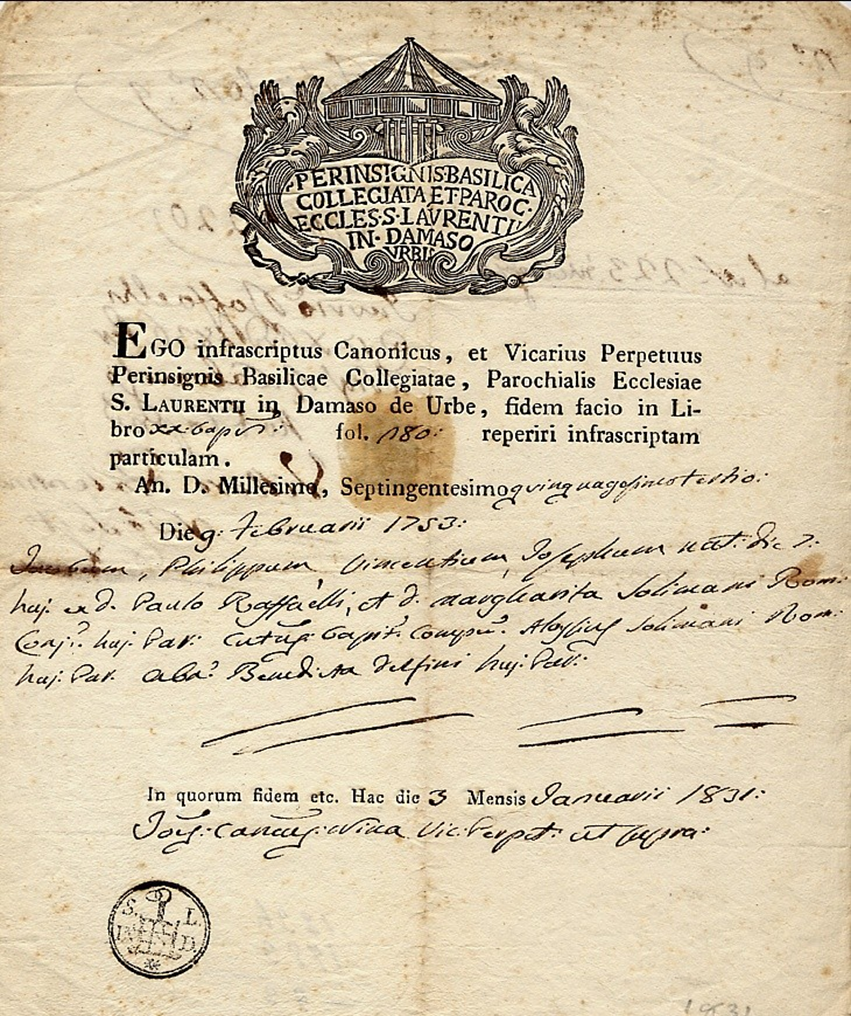 PERINSIGNIS·BASILICA
COLLEGIATA ET PAROC·
ECCLES·S·LAVRENTII
IN·DAMASO
VRBIS
EGO infrascriptus Canonicus, et Vicarius Perpetuus
Perinsignis Basilicae Collegiatae, Parochialis Ecclesiae
S. LAURENTII in Damaso de Urbe, fidem facio in Li-
bro xx. fol. 180: reperiri infrascriptam
particulam.
An. D. Millesimo, Septingentesimo quinquagesimo tertio:
Die 9: Februarii 1753:
Philippum Vincentium, Josephum nat: die 7:
huj: ex d. Paulo Raffaelli, et d. Margharita Solimani Rom:
Conj: huj: Par: Aloysius Solimani Rom:
huj: Par: Benedicta Delfini huj: Par:
In quorum fidem etc. Hac die 3 Mensis Januarii 1831:
ut supra:
S. L.
D.
1831